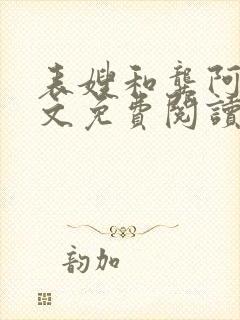 表嫂和龚阿
文免費閱讀
韵加